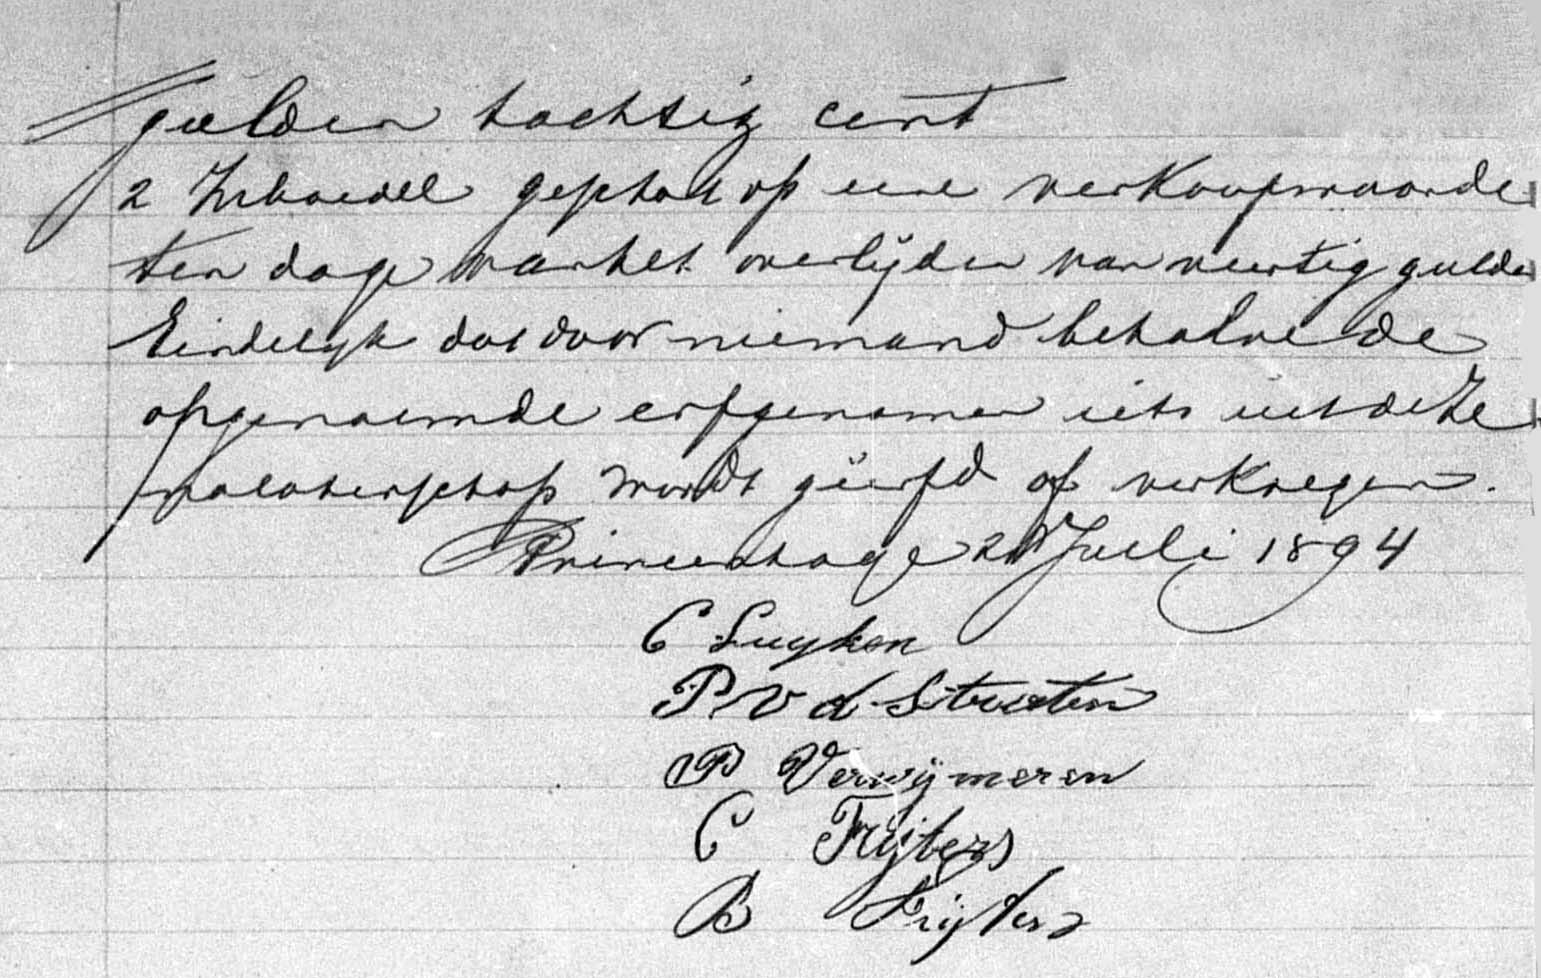 gulden tachtig cent
2 Inboedel geschat op eene verkoopwaarde
ten dage van het overlijden van veertig gulden
Eindelijk dat door niemand behalve de
opgenoemde erfgenamen iets uit deze
nalatenschap wordt geërfd of verkregen.
Princenhage Juli 1894
C Luyken
P. v d Straten
P Verwijmeren
C Frijters
B Frijters